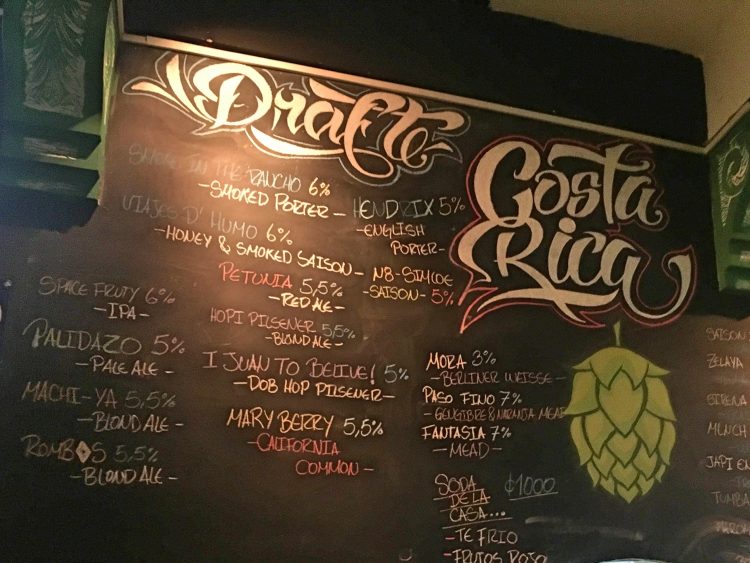 Drafts
Costa
Rica
SMOKE IN THE RANCHO 6%
- SMOKED PORTER -
VIAJES D' HUMO 6%
- HONEY & SMOKED SAISON -
PETUNIA 5,5%
- RED ALE -
HOPI PILSENER 5,5%
- BLOND ALE -
I JUAN TO BELIVE! 5%
- DOB HOP PILSENER -
MARY BERRY 5,5%
- CALIFORNIA
COMMON -
HENDRIX 5%
- ENGLISH
PORTER -
N8-SIMCOE
- SAISON - 5%
SPACE FRUTY 6%
- IPA -
PALIDAZO 5%
- PALE ALE -
MACHI-YA 5,5%
- BLOND ALE -
ROMBOS 5.5%
- BLOND ALE -
MORA 3%
- BERLINER WEISSE -
PASO FINO 7%
- GENGIBRE & NARANJA MEAD
FANTASIA 7%
- MEAD -
SODA ₡1000
DE LA
CASA...
- TE FRIO
- FRUTOS ROJO
SAISON
ZELAYA
SIRENA
MUNCH
JAPI EN
TUMBA